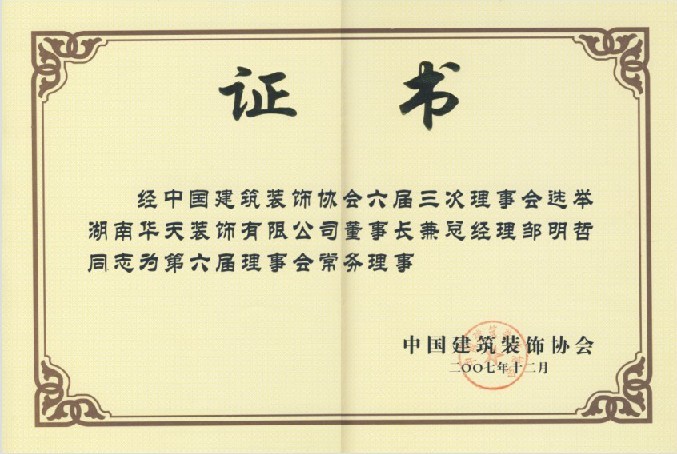 证书
经中国建筑装饰协会六届三次理事会选举
湖南华天装饰有限公司董事长兼总经理邹明哲
同志为第六届理事会常务理事
中国建筑装饰协会
二〇〇七年十二月